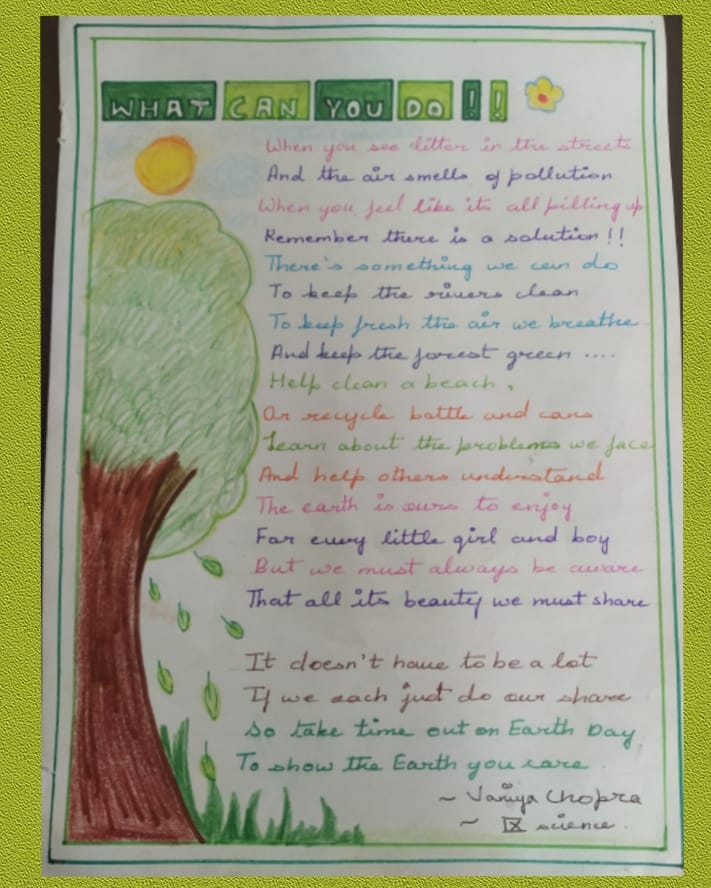 WHAT CAN YOU DO !!
When you see litter in the streets
And the air smells of pollution
When you feel like its all pilling up
Remember there is a solution!!
There's something we can do
To keep the rivers clean
To keep fresh the air we breathe
And keep the forest green ....
Help clean a beach,
Or recycle bottle and cans
Learn about the problems we face
And help others understand
The earth is ours to enjoy
For every little girl and boy
But we must always be aware
That all its beauty we must share
It doesn't have to be a lot
If we each just do our share
So take time out on Earth Day
To show the Earth you care.
~ Vaniya Chopra
~ IX science.